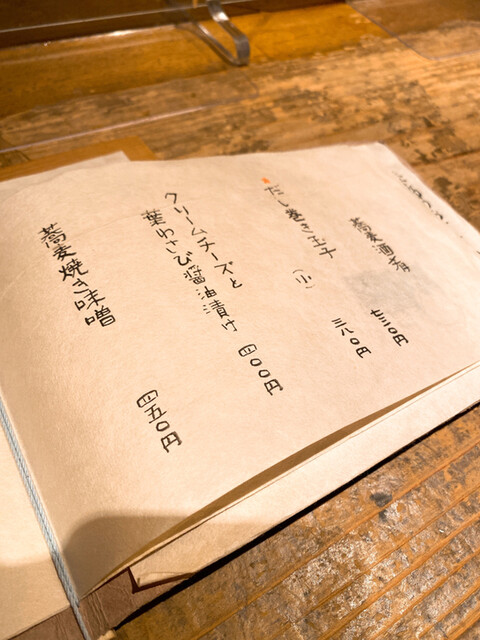 蕎麦酒肴
七三〇円
だし巻き玉子 (小)
三八〇円
クリームチーズと
葉わさび醤油漬け
四〇〇円
蕎麦焼き味噌
四五〇円